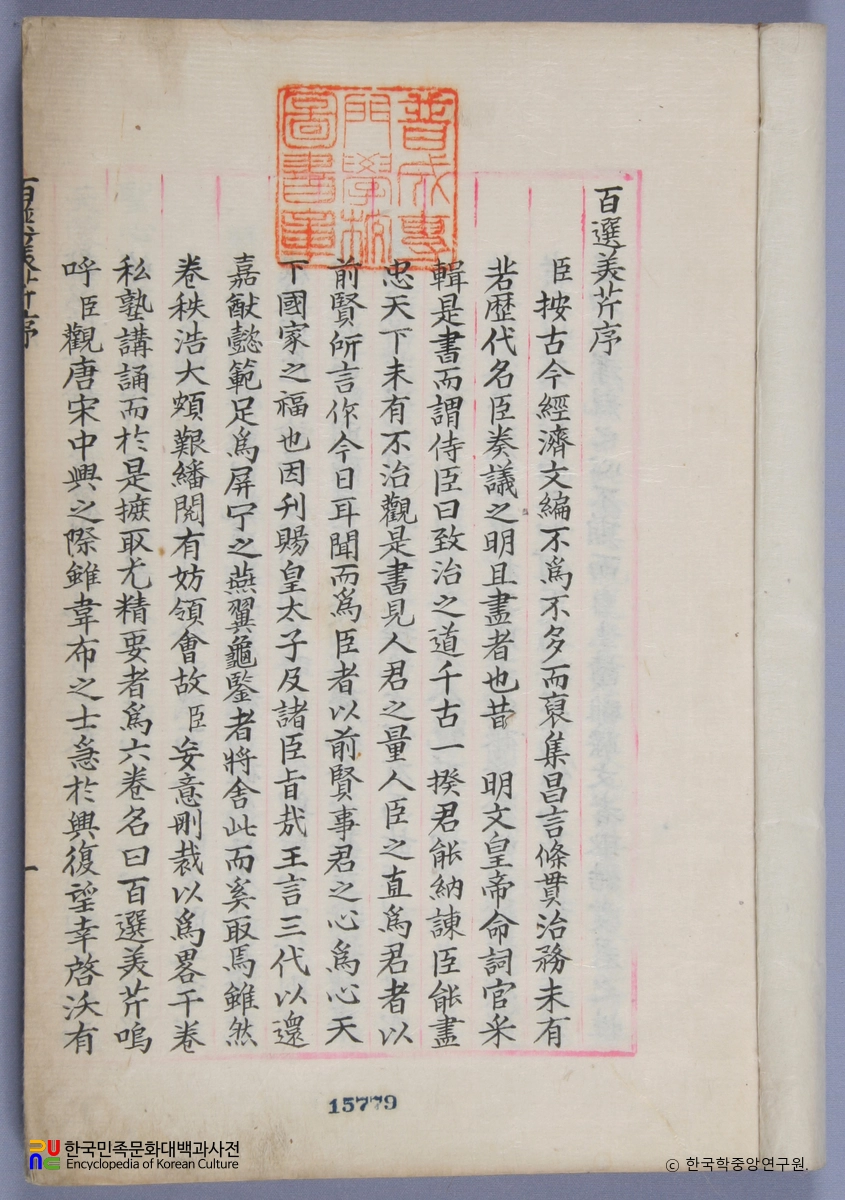 百選美芹序
臣按古今經濟文編不爲不多而裒集昌言條貫治務未有
若歷代名臣奏議之明且盡者也昔 明文皇帝命詞官采
輯是書而謂侍臣曰致治之道千古一揆君能納諫臣能盡
忠天下未有不治觀是書見人君之量人臣之直爲君者以
前賢所言作今日耳聞而爲臣者以前賢事君之心爲心天
下國家之福也因刊賜皇太子及諸臣旨哉王言三代以還
嘉猷懿範足爲屛宁之燕翼龜鑒者將舍此而奚取焉雖然
卷秩浩大頗艱繙閱有妨領會故臣妄意刪裁以爲畧干卷
私塾講誦而於是摭取尤精要者爲六卷名曰百選美芹嗚
呼臣觀唐宋中興之際雖韋布之士急於興復望幸啓沃有
百選美芹序
一
普成專
門學校
圖書軍
15779
한국민족문화대백과사전
Encyclopedia of Korean Culture
© 한국학중앙연구원.